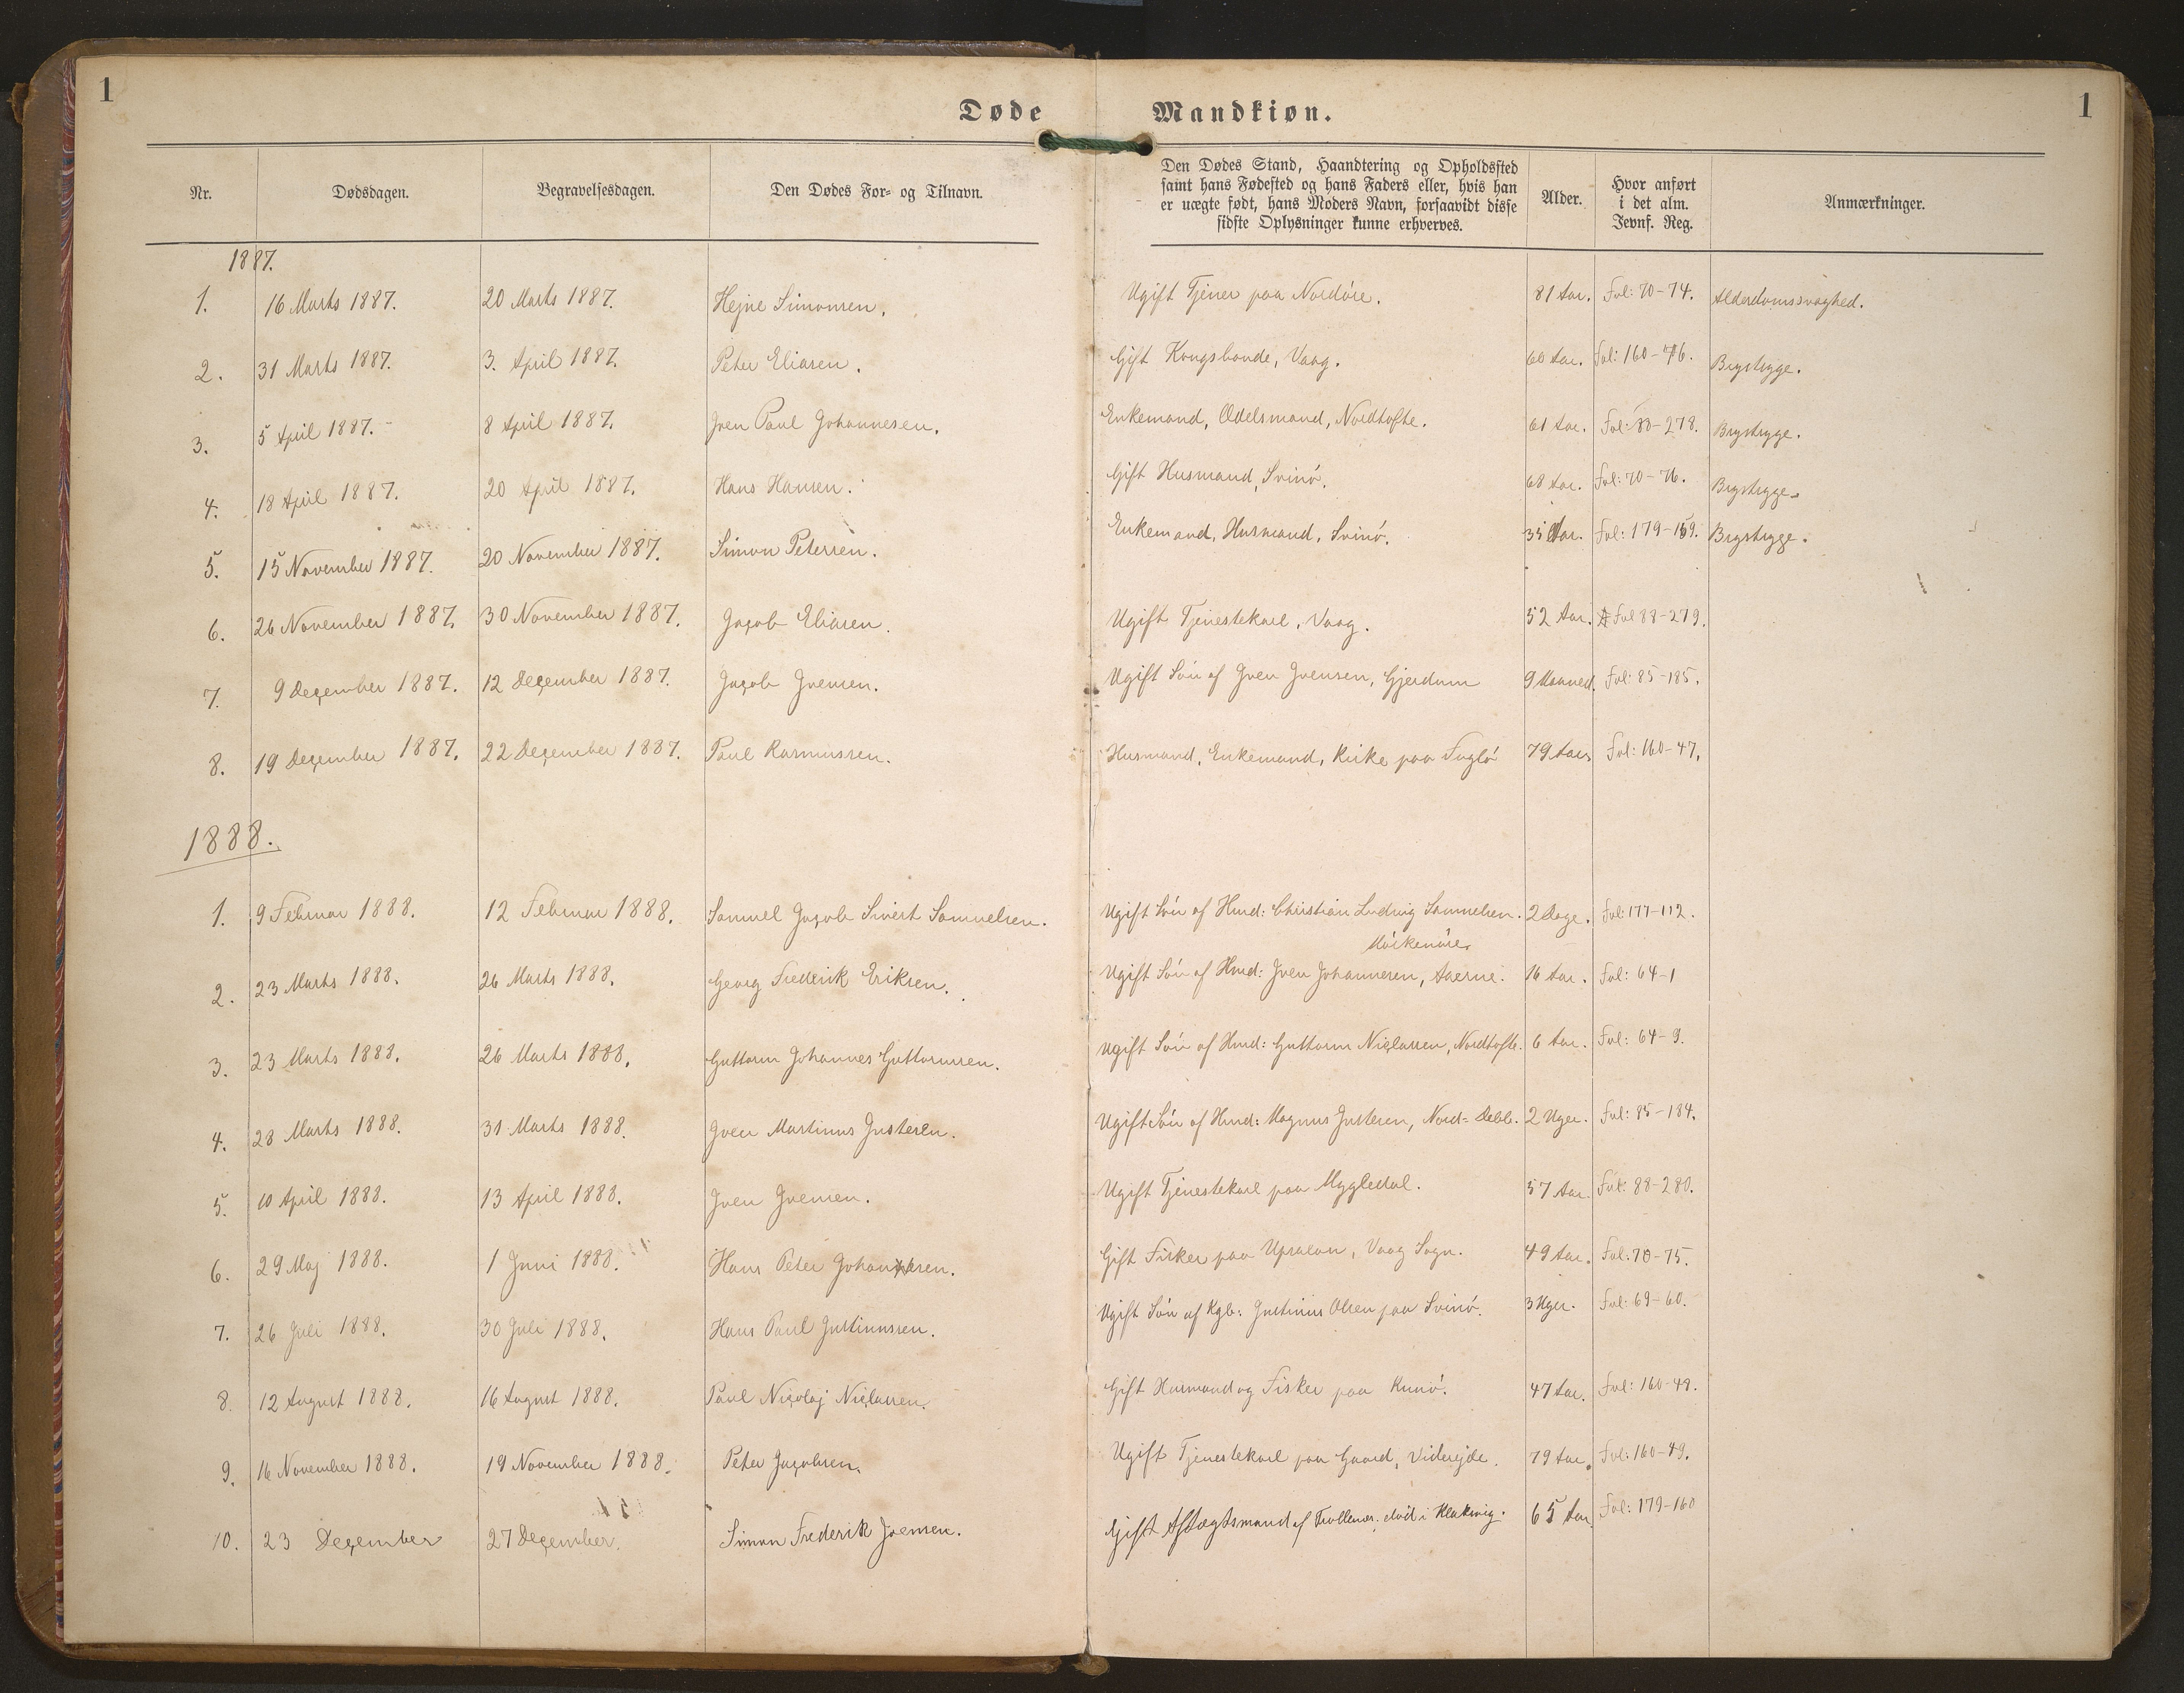 1
1
Døde Mandkiøn.
Nr. Dødsdagen. Begravelsesdagen. Den Dødes For- og Tilnavn. Den Dødes Stand, Haandtering og Opholdssted samt hans Fødested og hans Faders eller, hvis han er uægte født, hans Moders Navn, forsaavidt disse sidste Oplysninger kunne erhverves. Alder. Hvor anført i det alm. Jevnf. Reg. Anmærkninger.
1887.
1. 16 Marts 1887. 20 Marts 1887. Hejne Simonsen. Ugift Tjener paa Nordøre. 81 Aar. Fol: 70-74. Alderdomssvaghed.
2. 31 Marts 1887. 3. April 1887. Peter Eliasen. Gift Kongsbonde, Vaag. 60 Aar. Fol: 160-46. Brystsyge.
3. 5 April 1887. 8 April 1887. Joen Paul Johannesen. Enkemand, Odelsmand, Nordtofte. 61 Aar. Fol: 88-278. Brystsyge.
4. 18 April 1887. 20 April 1887. Hans Hansen. Gift Husmand, Svinó. 68 Aar. Fol: 70-76. Brystsyge.
5. 15 November 1887. 20 November 1887. Simon Petersen. Enkemand, Husmand, Svinó. 35 Aar. Fol: 179-159. Brystsyge.
6. 26 November 1887. 30 November 1887. Jacob Eliasen. Ugift Tjenestekarl, Vaag. 52 Aar. Fol 88-279.
7. 9 December 1887. 12 December 1887. Jacob Joensen. Ugift Són af Joen Joensen, Gjerdum 9 Maaned. Fol: 85-185.
8. 19 December 1887. 22 December 1887. Paul Rasmussen. Husmand, Enkemand, Kirke paa Fugló 79 Aar. Fol: 160-47.
1888.
1. 9 Februar 1888. 12 Februar 1888. Samuel Jacob Sivert Samuelsen. Ugift Són af Hmd: Christian Ludvig Samuelsen. 2 Dage. Fol: 177-112.
Mórkenóre
2. 23 Marts 1888. 26 Marts 1888. Georg Frederik Eriksen. Ugift Són af Hmd: Joen Johannesen, Aaerne. 16 Aar. Fol: 64-1
3. 23 Marts 1888. 26 Marts 1888. Guttorm Johannes Guttormsen. Ugift Són af Hmd: Guttorm Niclassen, Nordtofte. 6 Aar. Fol: 64-9.
4. 28 Marts 1888. 31 Marts 1888. Joen Martinus Justesen. Ugift Són af Hmd: Magnus Justesen, Nord-Debb. 2 Uger. Fol: 85-184.
5. 10 April 1888. 13 April 1888. Joen Joensen. Ugift Tjenestekarl paa Mygledal. 57 Aar. Fol: 88-280.
6. 29 Maj 1888. 1 Juni 1888. Hans Peter Gift Fisker paa Upsalon, Vaag Sogn. 49 Aar. Fol: 70-75.
7. 26 Juli 1888. 30 Juli 1888. Hans Paul Justinussen. Ugift Són af Kgb: Justinus Olsen paa Svinó. 3 Uger. Fol: 69-60.
8. 12 August 1888. 16 August 1888. Paul Nicolaj Niclassen. Gift Husmand og Fisker paa Kunó. 47 Aar. Fol: 160-48.
9. 16 November 1888. 19 November 1888. Peter Jacobsen. Ugift Tjenestekarl paa Gaard, Viderejde. 79 Aar. Fol: 160-49.
10. 23 December 27 December. Simon Frederik Joensen. Gift Aftægtsmand af Trollenæs. død i Klaksvig. 65 Aar. Fol: 179-160